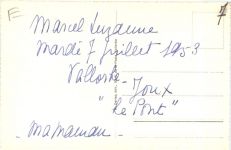 E
7
Marcel Suzanne
Mardi 7 juillet 1953
Vallorbe - Joux
"le Pont"
- Ma maman -